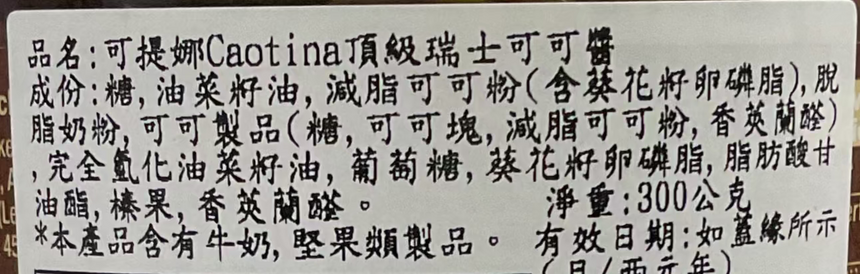 品名:可提娜Caotina頂級瑞士可可醬
成份:糖,油菜籽油,減脂可可粉(含葵花籽卵磷脂),脫
脂奶粉,可可製品(糖,可可塊,減脂可可粉,香莢蘭醛)
,完全氫化油菜籽油,葡萄糖,葵花籽卵磷脂,脂肪酸甘
油酯,榛果,香莢蘭醛。 淨重:300公克
*本產品含有牛奶,堅果類製品。 有效日期:如蓋緣所示
(日/西元年)